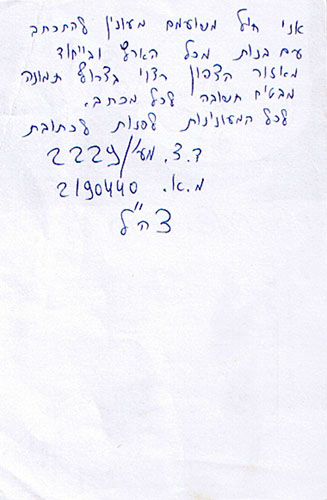 אני חייל משועמם מעונין להתכתב
עם בנות מכל הארץ ובייחוד
מאזור הצפון רצוי בצרוף תמונה
מבטיח תשובה לכל מכתב.
לכל המעונינות לפנות לכתובת
ד.צ. מע'/2229
מ.א. 2190440
צה"ל